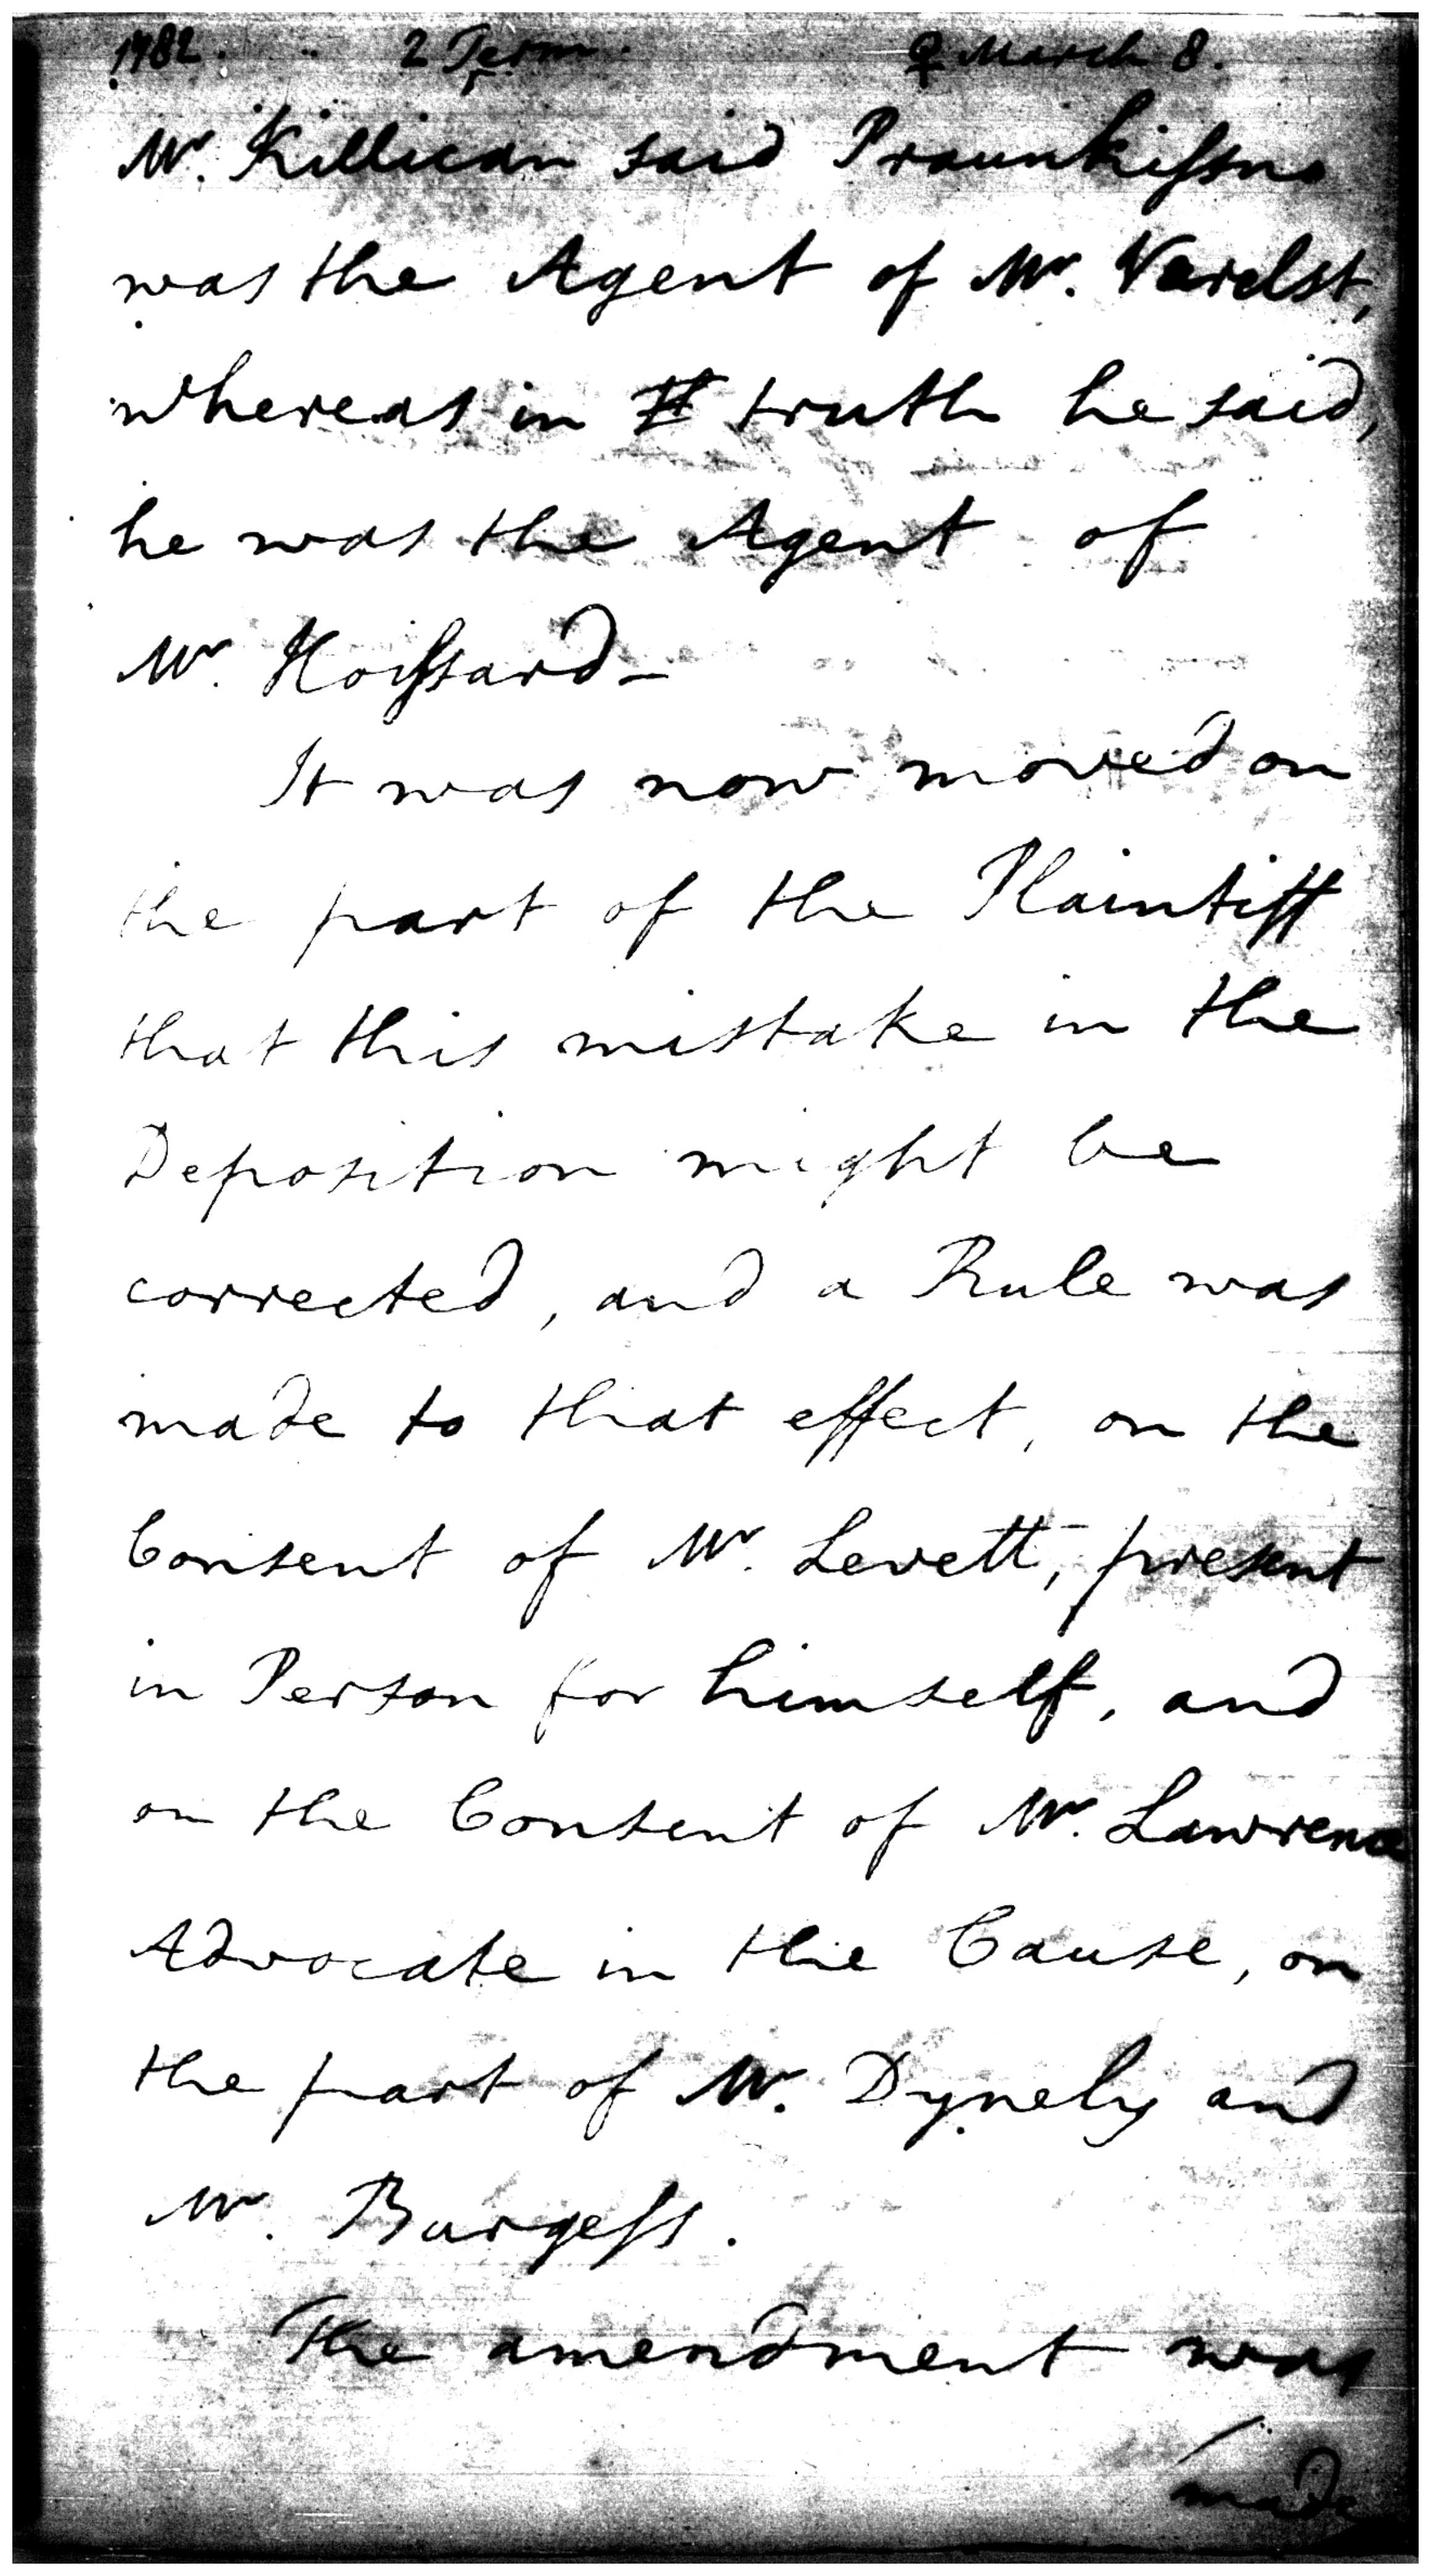 1782. 2 Term. ♀ March 8.
Mr. Killican said Praunkissno
was the Agent of Mr. Varelst,
whereas in truth he said,
he was the Agent of
Mr. Hoissard–
It was now moved on
the part of the Plaintiff
that this mistake in the
Deposition might be
corrected, and a Rule was
made to that effect, on the
Consent of Mr. Levett, present
in Person for himself, and
on the Consent of Mr. Lawrence
Advocate in the Cause, on
the part of Mr. Dynely and
Mr. Burgess.
The amendment was
made